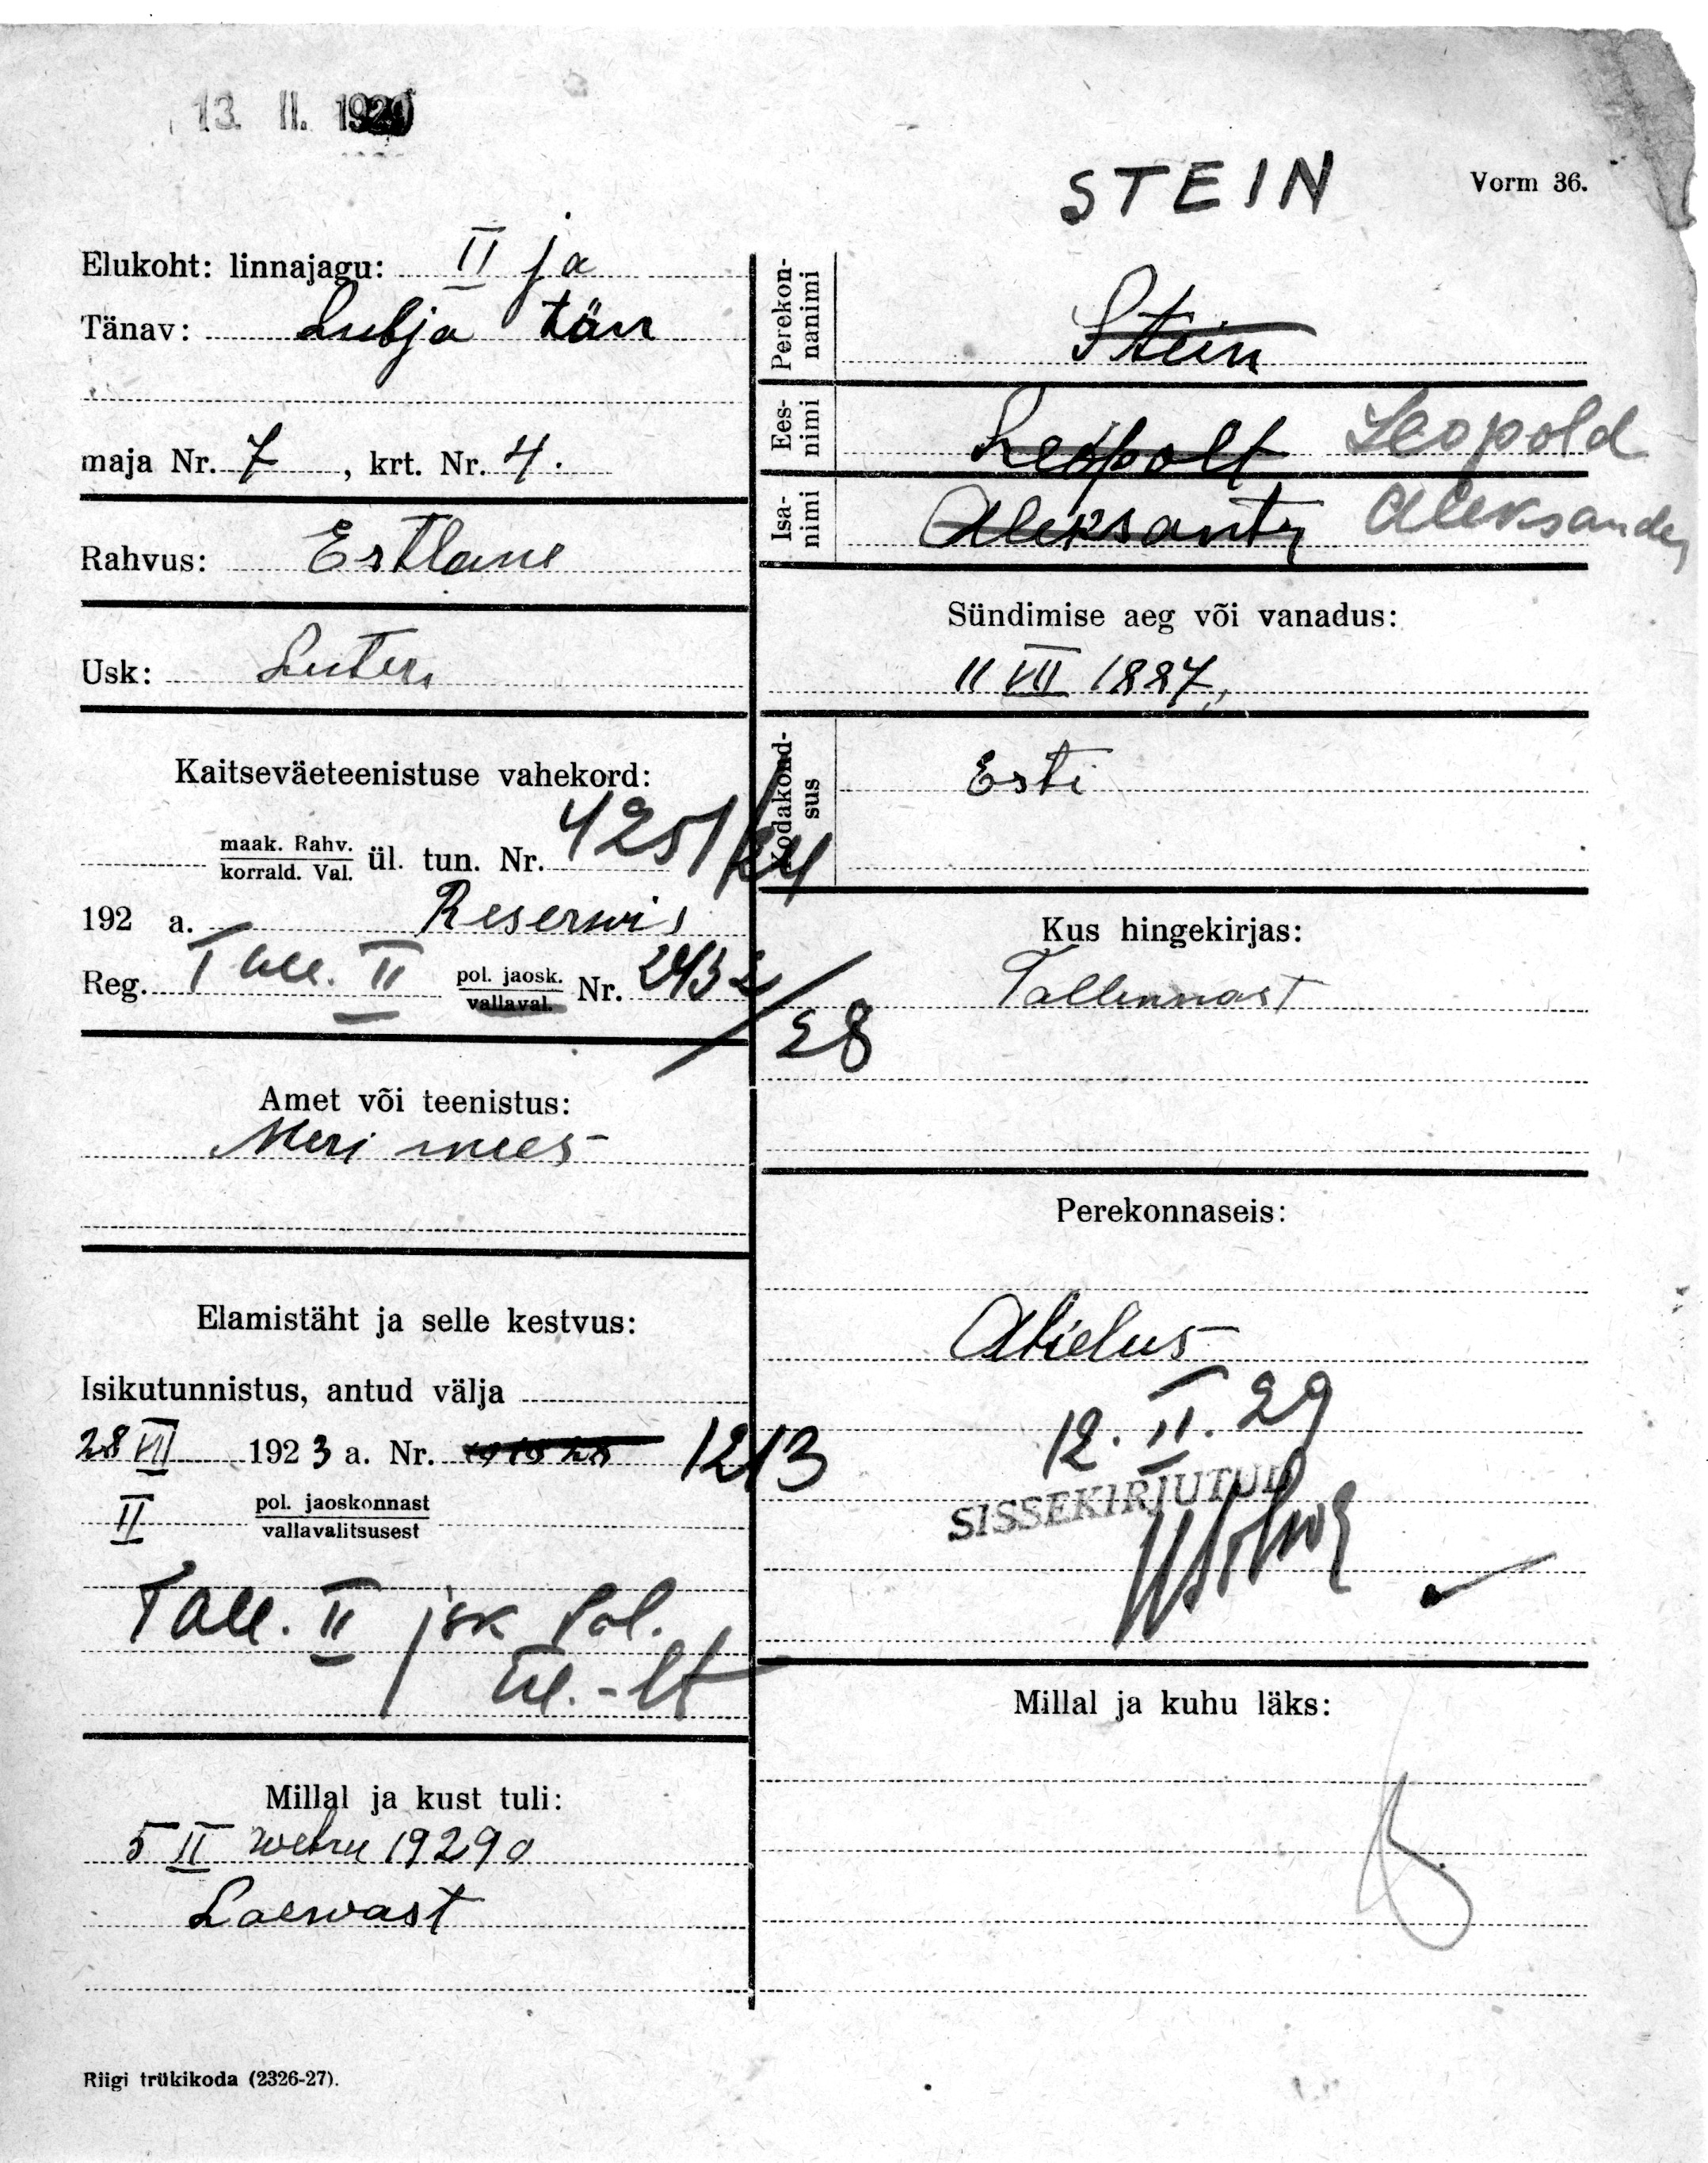 13. II. 1929
STEIN
Vorm 36.
Elukoht: linnajagu: II ja
Tänav: Lubja tän
maja Nr. 7, krt. Nr. 4.
Rahvus: Estlane
Usk: Luteri
Kaitseväeteenistuse vahekord:
maak. Rahv.
korrald. Val. ül. tun. Nr. 4251/24
192 a. Reserwis
Reg. Tall. II pol. jaosk. Nr. 2432/28
vallaval.
Amet või teenistus:
Meri mees
Elamistäht ja selle kestvus:
Isikutunnistus, antud välja
28 VII 1923 a. Nr. 1213
II pol. jaoskonnast
vallavalitsusest
Tall. II jsk Pol.
Ül.-lt
Millal ja kust tuli:
5 II 1929
Laewast
Perekonnanimi Stein
Eesnimi Leopolt Leopold
Isanimi Aleksantr Aleksander
Sündimise aeg või vanadus:
11 VII 1887,
Kodakondsus Esti
Kus hingekirjas:
Tallinnast
Perekonnaseis:
Abielus
12. II. 29
SISSEKIRJUTUD
Millal ja kuhu läks:
Riigi trükikoda (2326-27).